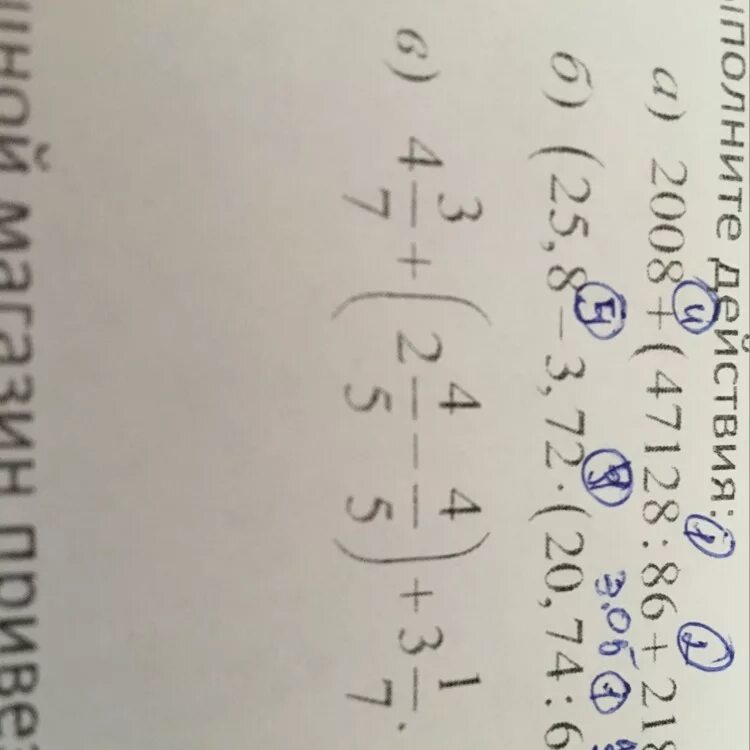 ыполните действия:
а) 2008 + (47128 : 86 + 218
б) (25,8 − 3,72 · (20,74 : 6
3,05
в) 4 3/7 + (2 4/5 − 4/5) + 3 1/7.
шной магазин привез